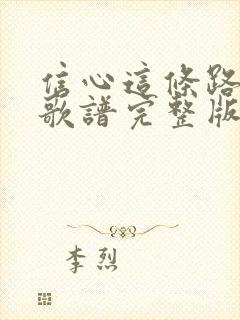 信心這條路
歌譜完整版
李烈